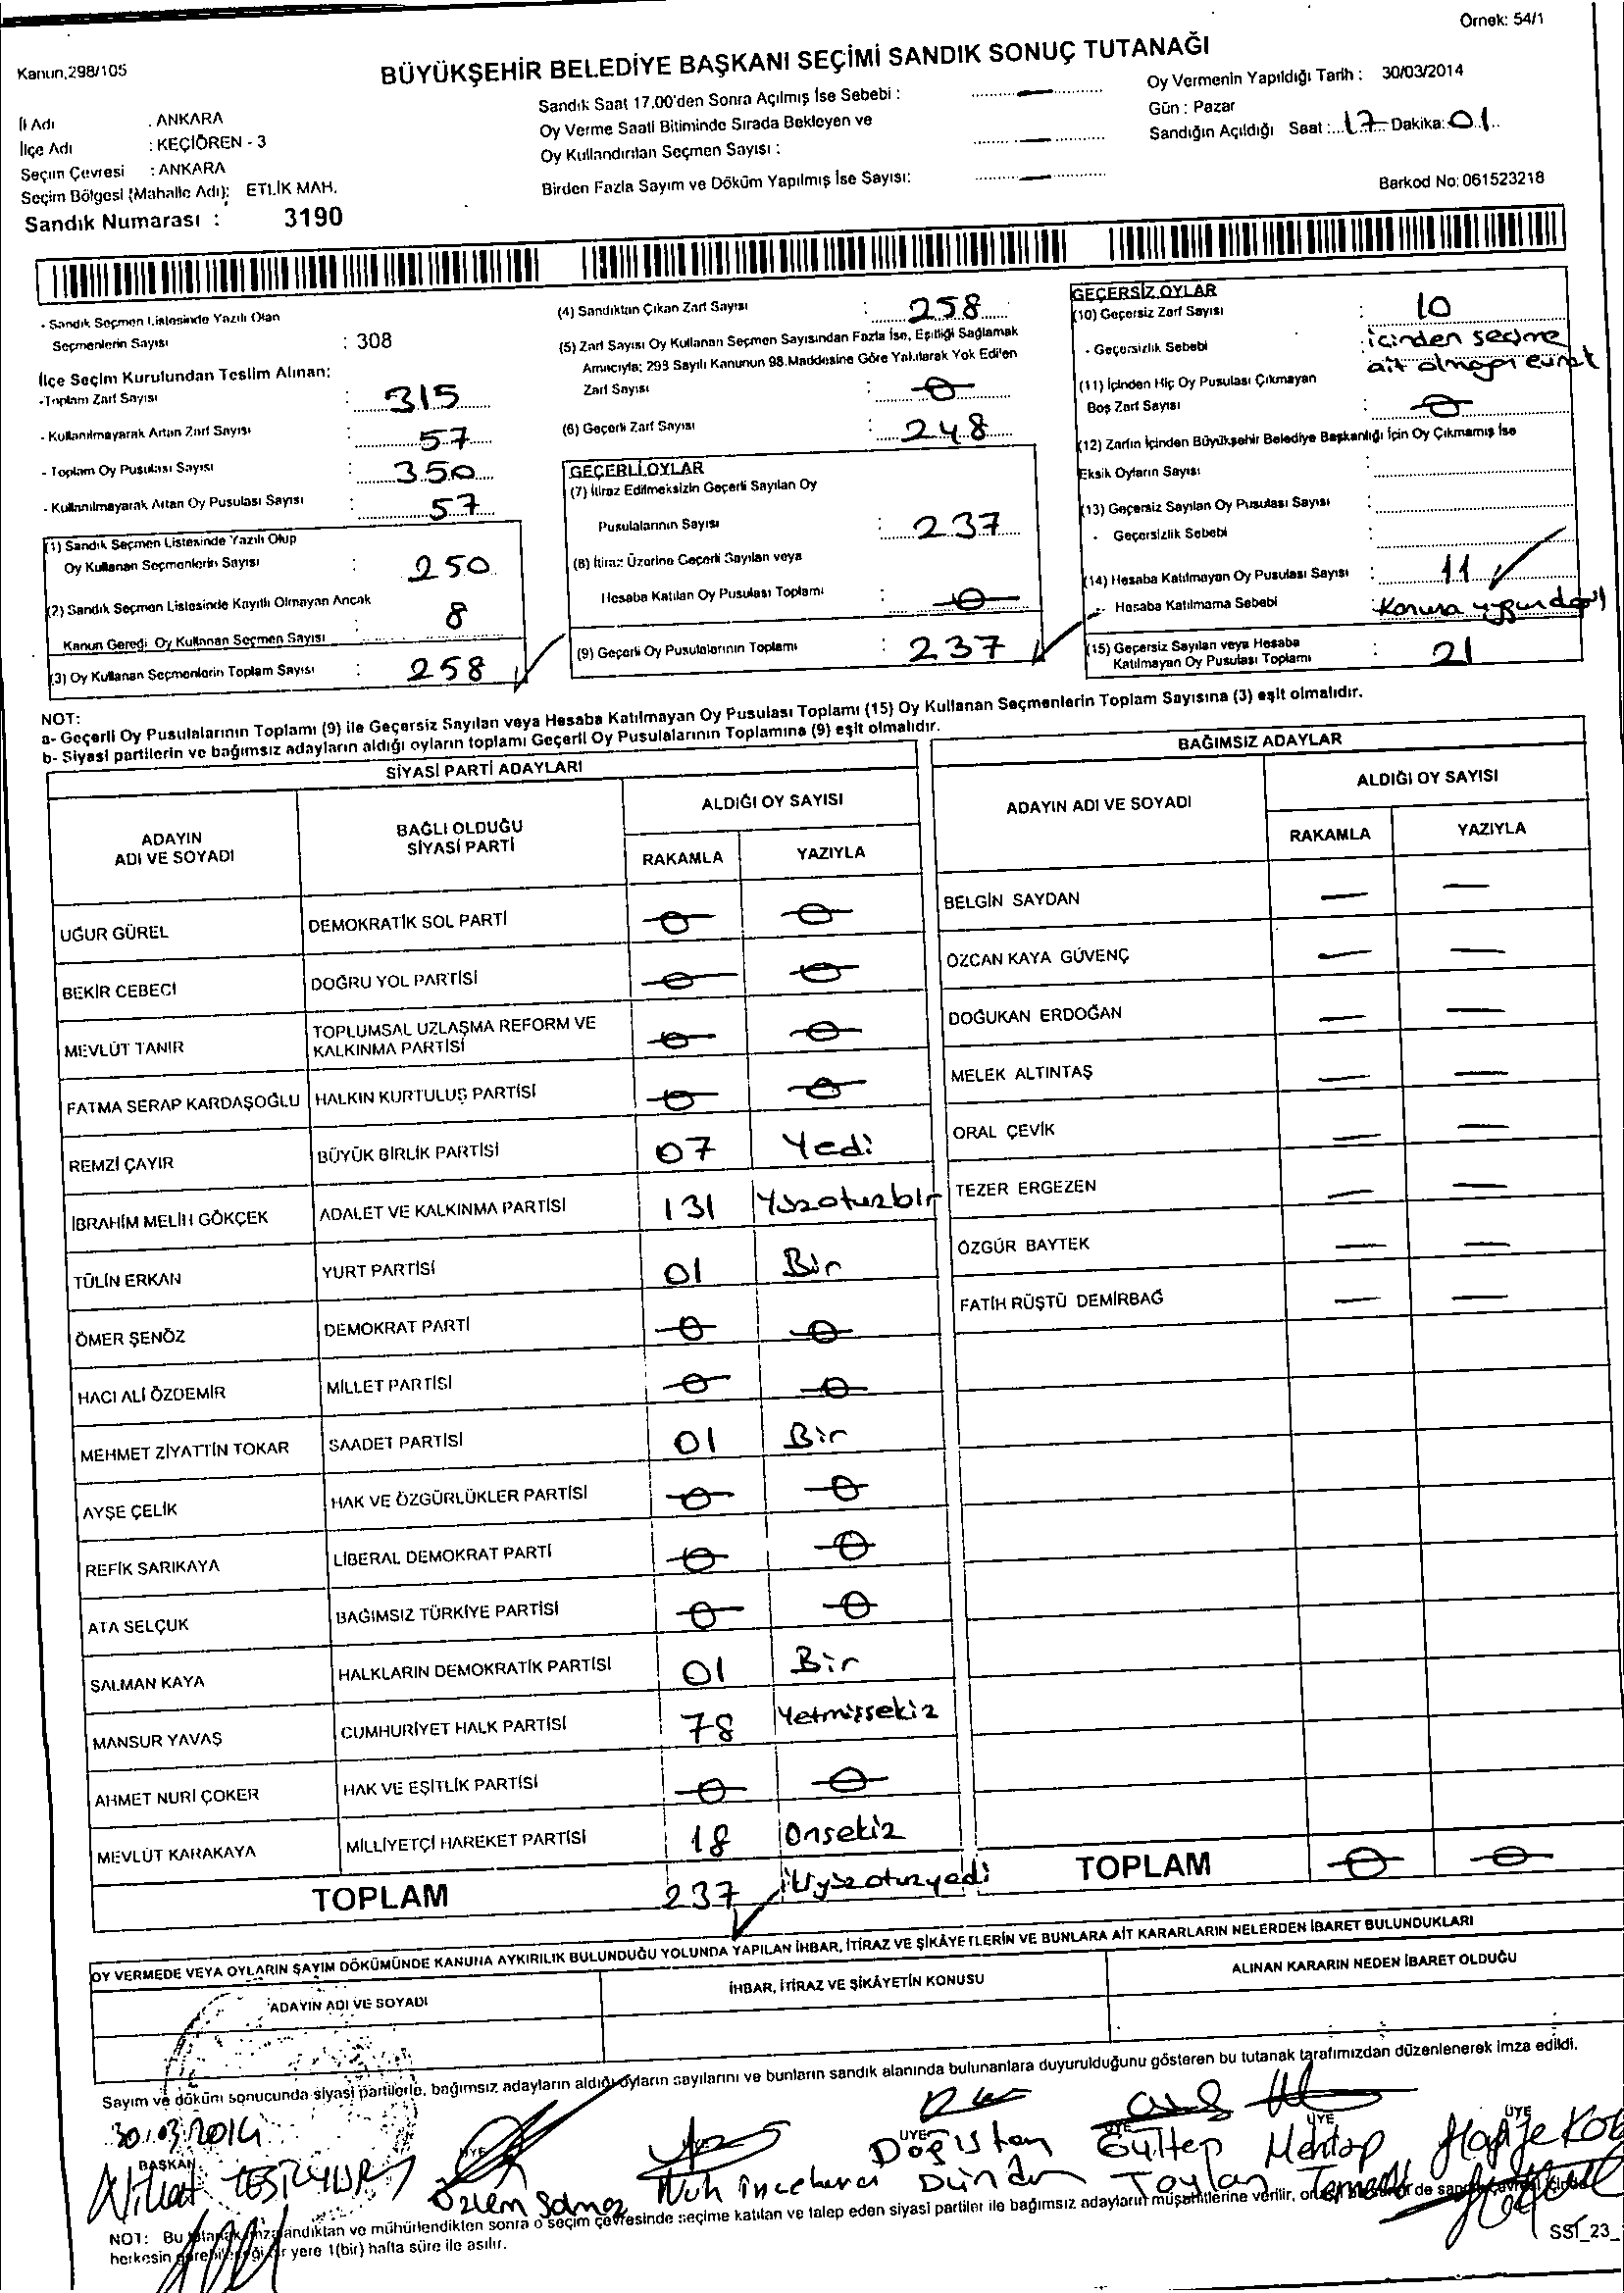 Örnek: 54/1
Kanun,298/105
BÜYÜKŞEHİR BELEDİYE BAŞKANI SEÇİMİ SANDIK SONUÇ TUTANAĞI
İl Adı : ANKARA
İlçe Adı : KEÇİÖREN - 3
Seçim Çevresi : ANKARA
Seçim Bölgesi (Mahalle Adı): ETLİK MAH.
Sandık Numarası : 3190
Sandık Saat 17.00'den Sonra Açılmış İse Sebebi : —
Oy Verme Saati Bitiminde Sırada Bekleyen ve
Oy Kullandırılan Seçmen Sayısı : —
Birden Fazla Sayım ve Döküm Yapılmış İse Sayısı: —
Oy Vermenin Yapıldığı Tarih : 30/03/2014
Gün : Pazar
Sandığın Açıldığı Saat : 17 Dakika: 01
Barkod No: 061523218
- Sandık Seçmen Listesinde Yazılı Olan
Seçmenlerin Sayısı : 308
İlçe Seçim Kurulundan Teslim Alınan:
-Toplam Zarf Sayısı : 315
- Kullanılmayarak Artan Zarf Sayısı : 57
- Toplam Oy Pusulası Sayısı : 350
- Kullanılmayarak Artan Oy Pusulası Sayısı : 57
(1) Sandık Seçmen Listesinde Yazılı Olup
Oy Kullanan Seçmenlerin Sayısı : 250
(2) Sandık Seçmen Listesinde Kayıtlı Olmayan Ancak
Kanun Gereği Oy Kullanan Seçmen Sayısı : 8
(3) Oy Kullanan Seçmenlerin Toplam Sayısı : 258
(4) Sandıktan Çıkan Zarf Sayısı : 258
(5) Zarf Sayısı Oy Kullanan Seçmen Sayısından Fazla İse, Eşitliği Sağlamak
Amacıyla; 298 Sayılı Kanunun 98.Maddesine Göre Yakılarak Yok Edilen
Zarf Sayısı : 0
(6) Geçerli Zarf Sayısı : 248
GEÇERLİ OYLAR
(7) İtiraz Edilmeksizin Geçerli Sayılan Oy
Pusulalarının Sayısı : 237
(8) İtiraz Üzerine Geçerli Sayılan veya
Hesaba Katılan Oy Pusulası Toplamı : 0
(9) Geçerli Oy Pusulalarının Toplamı : 237
GEÇERSİZ OYLAR
(10) Geçersiz Zarf Sayısı : 10
- Geçersizlik Sebebi : içinden seçime
ait olmayan evrak
(11) İçinden Hiç Oy Pusulası Çıkmayan
Boş Zarf Sayısı : 0
(12) Zarfın İçinden Büyükşehir Belediye Başkanlığı İçin Oy Çıkmamış İse
Eksik Oyların Sayısı :
(13) Geçersiz Sayılan Oy Pusulası Sayısı :
- Geçersizlik Sebebi :
(14) Hesaba Katılmayan Oy Pusulası Sayısı : 11
- Hesaba Katılmama Sebebi Kanuna uygun değil
(15) Geçersiz Sayılan veya Hesaba
Katılmayan Oy Pusulası Toplamı : 21
NOT:
a- Geçerli Oy Pusulalarının Toplamı (9) ile Geçersiz Sayılan veya Hesaba Katılmayan Oy Pusulası Toplamı (15) Oy Kullanan Seçmenlerin Toplam Sayısına (3) eşit olmalıdır.
b- Siyasi partilerin ve bağımsız adayların aldığı oyların toplamı Geçerli Oy Pusulalarının Toplamına (9) eşit olmalıdır.
SİYASİ PARTİ ADAYLARI
ADAYIN ADI VE SOYADI BAĞLI OLDUĞU SİYASİ PARTİ ALDIĞI OY SAYISI
RAKAMLA YAZIYLA
UĞUR GÜREL DEMOKRATİK SOL PARTİ 0 0
BEKİR CEBECİ DOĞRU YOL PARTİSİ 0 0
MEVLÜT TANIR TOPLUMSAL UZLAŞMA REFORM VE KALKINMA PARTİSİ 0 0
FATMA SERAP KARDAŞOĞLU HALKIN KURTULUŞ PARTİSİ 0 0
REMZİ ÇAYIR BÜYÜK BİRLİK PARTİSİ 07 Yedi
İBRAHİM MELİH GÖKÇEK ADALET VE KALKINMA PARTİSİ 131 Yüzotuzbir
TÜLİN ERKAN YURT PARTİSİ 01 Bir
ÖMER ŞENÖZ DEMOKRAT PARTİ 0 0
HACI ALİ ÖZDEMİR MİLLET PARTİSİ 0 0
MEHMET ZİYATTİN TOKAR SAADET PARTİSİ 01 Bir
AYŞE ÇELİK HAK VE ÖZGÜRLÜKLER PARTİSİ 0 0
REFİK SARIKAYA LİBERAL DEMOKRAT PARTİ 0 0
ATA SELÇUK BAĞIMSIZ TÜRKİYE PARTİSİ 0 0
SALMAN KAYA HALKLARIN DEMOKRATİK PARTİSİ 01 Bir
MANSUR YAVAŞ CUMHURİYET HALK PARTİSİ 78 Yetmişsekiz
AHMET NURİ ÇOKER HAK VE EŞİTLİK PARTİSİ 0 0
MEVLÜT KARAKAYA MİLLİYETÇİ HAREKET PARTİSİ 18 Onsekiz
TOPLAM 237 ikiyüzotuzyedi
BAĞIMSIZ ADAYLAR
ADAYIN ADI VE SOYADI ALDIĞI OY SAYISI
RAKAMLA YAZIYLA
BELGİN SAYDAN — —
ÖZCAN KAYA GÜVENÇ — —
DOĞUKAN ERDOĞAN — —
MELEK ALTINTAŞ — —
ORAL ÇEVİK — —
TEZER ERGEZEN — —
ÖZGÜR BAYTEK — —
FATİH RÜŞTÜ DEMİRBAĞ — —
TOPLAM 0 0
OY VERMEDE VEYA OYLARIN SAYIM DÖKÜMÜNDE KANUNA AYKIRILIK BULUNDUĞU YOLUNDA YAPILAN İHBAR, İTİRAZ VE ŞİKÂYETLERİN VE BUNLARA AİT KARARLARIN NELERDEN İBARET BULUNDUKLARI
ADAYIN ADI VE SOYADI İHBAR, İTİRAZ VE ŞİKÂYETİN KONUSU ALINAN KARARIN NEDEN İBARET OLDUĞU
Sayım ve döküm sonucunda siyasi partilerle, bağımsız adayların aldığı oyların sayılarını ve bunların sandık alanında bulunanlara duyurulduğunu gösteren bu tutanak tarafımızdan düzenlenerek imza edildi.
30.03.2014
BAŞKAN ÜYE ÜYE ÜYE ÜYE ÜYE
Nihat
Özlem
Nuh
Doğıstan
Dündar
Gültep
Toylan
Mehtap
Hafize
NOT: Bu tutanak imzalandıktan ve mühürlendikten sonra o seçim çevresinde seçime katılan ve talep eden siyasi partiler ile bağımsız adayların müşahitlerine verilir,
herkesin görebileceği bir yere 1(bir) hafta süre ile asılır.
SST_23_